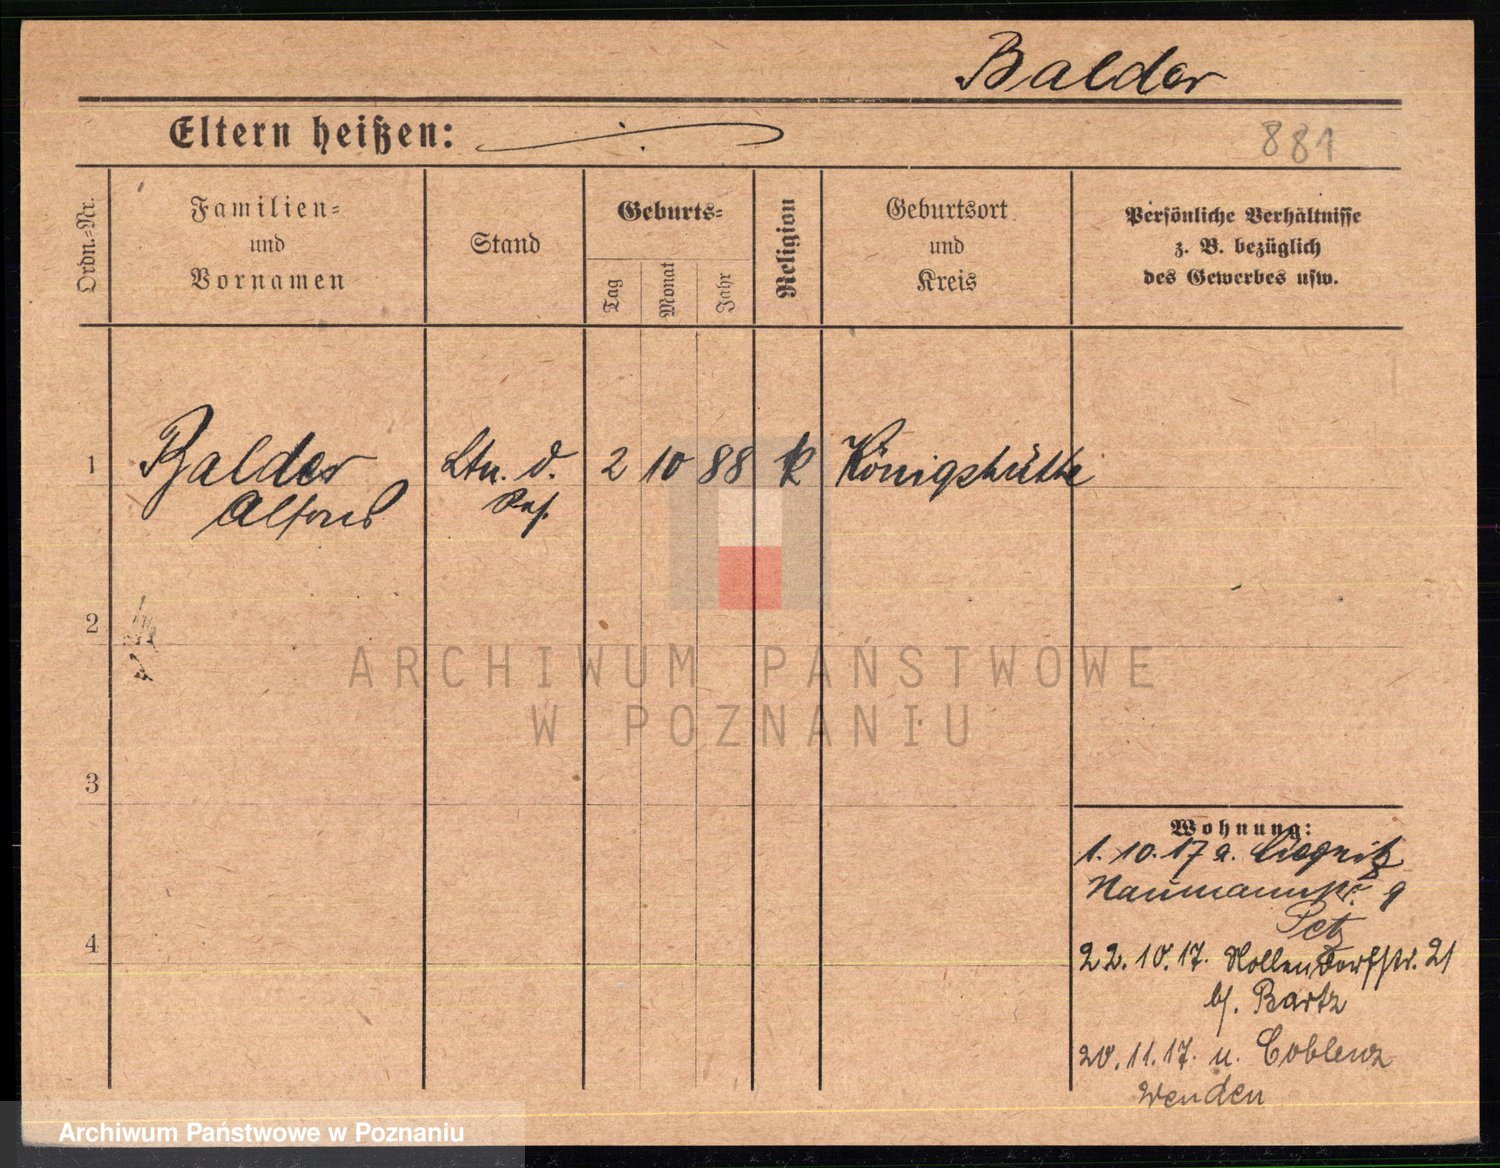 Balder
Eltern heißen:
881
Ordn.-Nr.
Familien-
und
Vornamen
Stand
Geburts-
Tag
Monat
Jahr
Religion
Geburtsort
und
Kreis
Persönliche Verhältnisse
z. B. bezüglich
des Gewerbes usw.
1 Balder Ltn. d. 2 10 88 k Königshütte
Alfons Res.
2
ARCHIWUM PAŃSTWOWE
W POZNANIU
3
Wohnung:
1. 10. 17 a. Liegnitz
Naumannstr. 9
4
22. 10. 17. Hollendorfstr. 21
b/. Bartz
20. 11. 17. u. Coblenz
Wenden
Archiwum Państwowe w Poznaniu